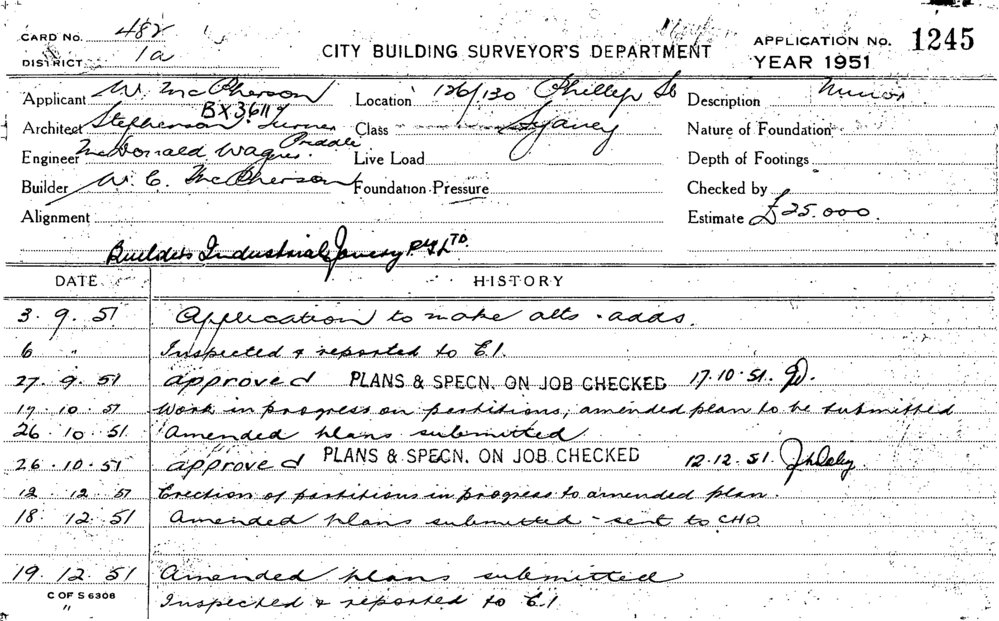 CARD NO. 482
DISTRICT 1a
CITY BUILDING SURVEYOR'S DEPARTMENT
APPLICATION NO. 1245
YEAR 1951
Applicant W. McPherson
BX3611
Location 126/130 Phillip St
Sydney
Description Minor
Architect Stephenson Turner
Class
Nature of Foundation
Engineer McDonald Wagner Priddle
Live Load
Depth of Footings
Builder W. C. McPherson
Foundation Pressure
Checked by
Alignment
Estimate £25.000.
Builders Industrial Joinery P. Y. LTD.
DATE HISTORY
3. 9. 51 Application to make alts. adds.
6 " Inspected & reported to E.I.
27. 9. 51 approved PLANS & SPECN. ON JOB CHECKED 17.10.51.
17. 10. 51 Work in progress on partitions, amended plan to be submitted
26. 10. 51. Amended plans submitted
26. 10. 51 approved PLANS & SPECN. ON JOB CHECKED 12.12.51.
12. 12. 51 Erection of partitions in progress to amended plan.
18. 12. 51 Amended plans submitted - sent to CHO.
19. 12. 51 Amended plans submitted
C OF S 6308
" Inspected & reported to E.I